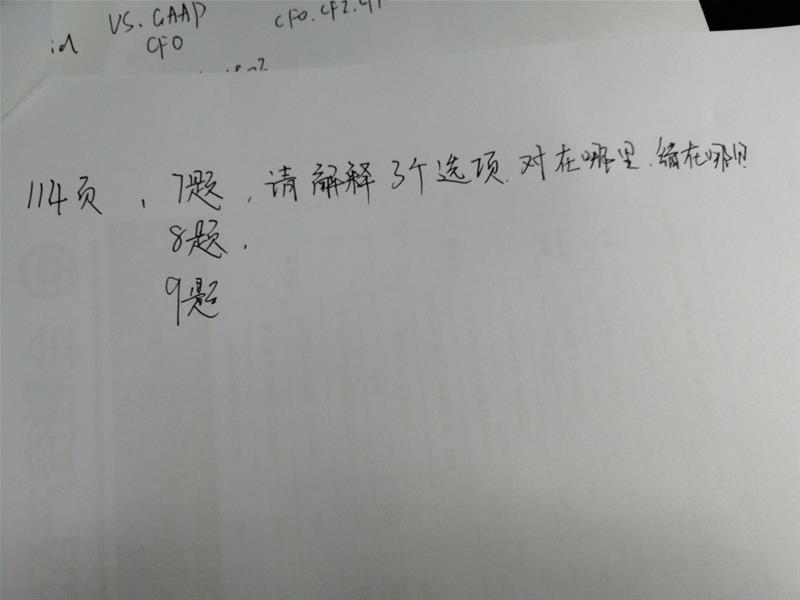 VS. GAAP
id
CFO
114页, 7题, 请解释3个选项.对在哪里.错在哪里
8题,
9题